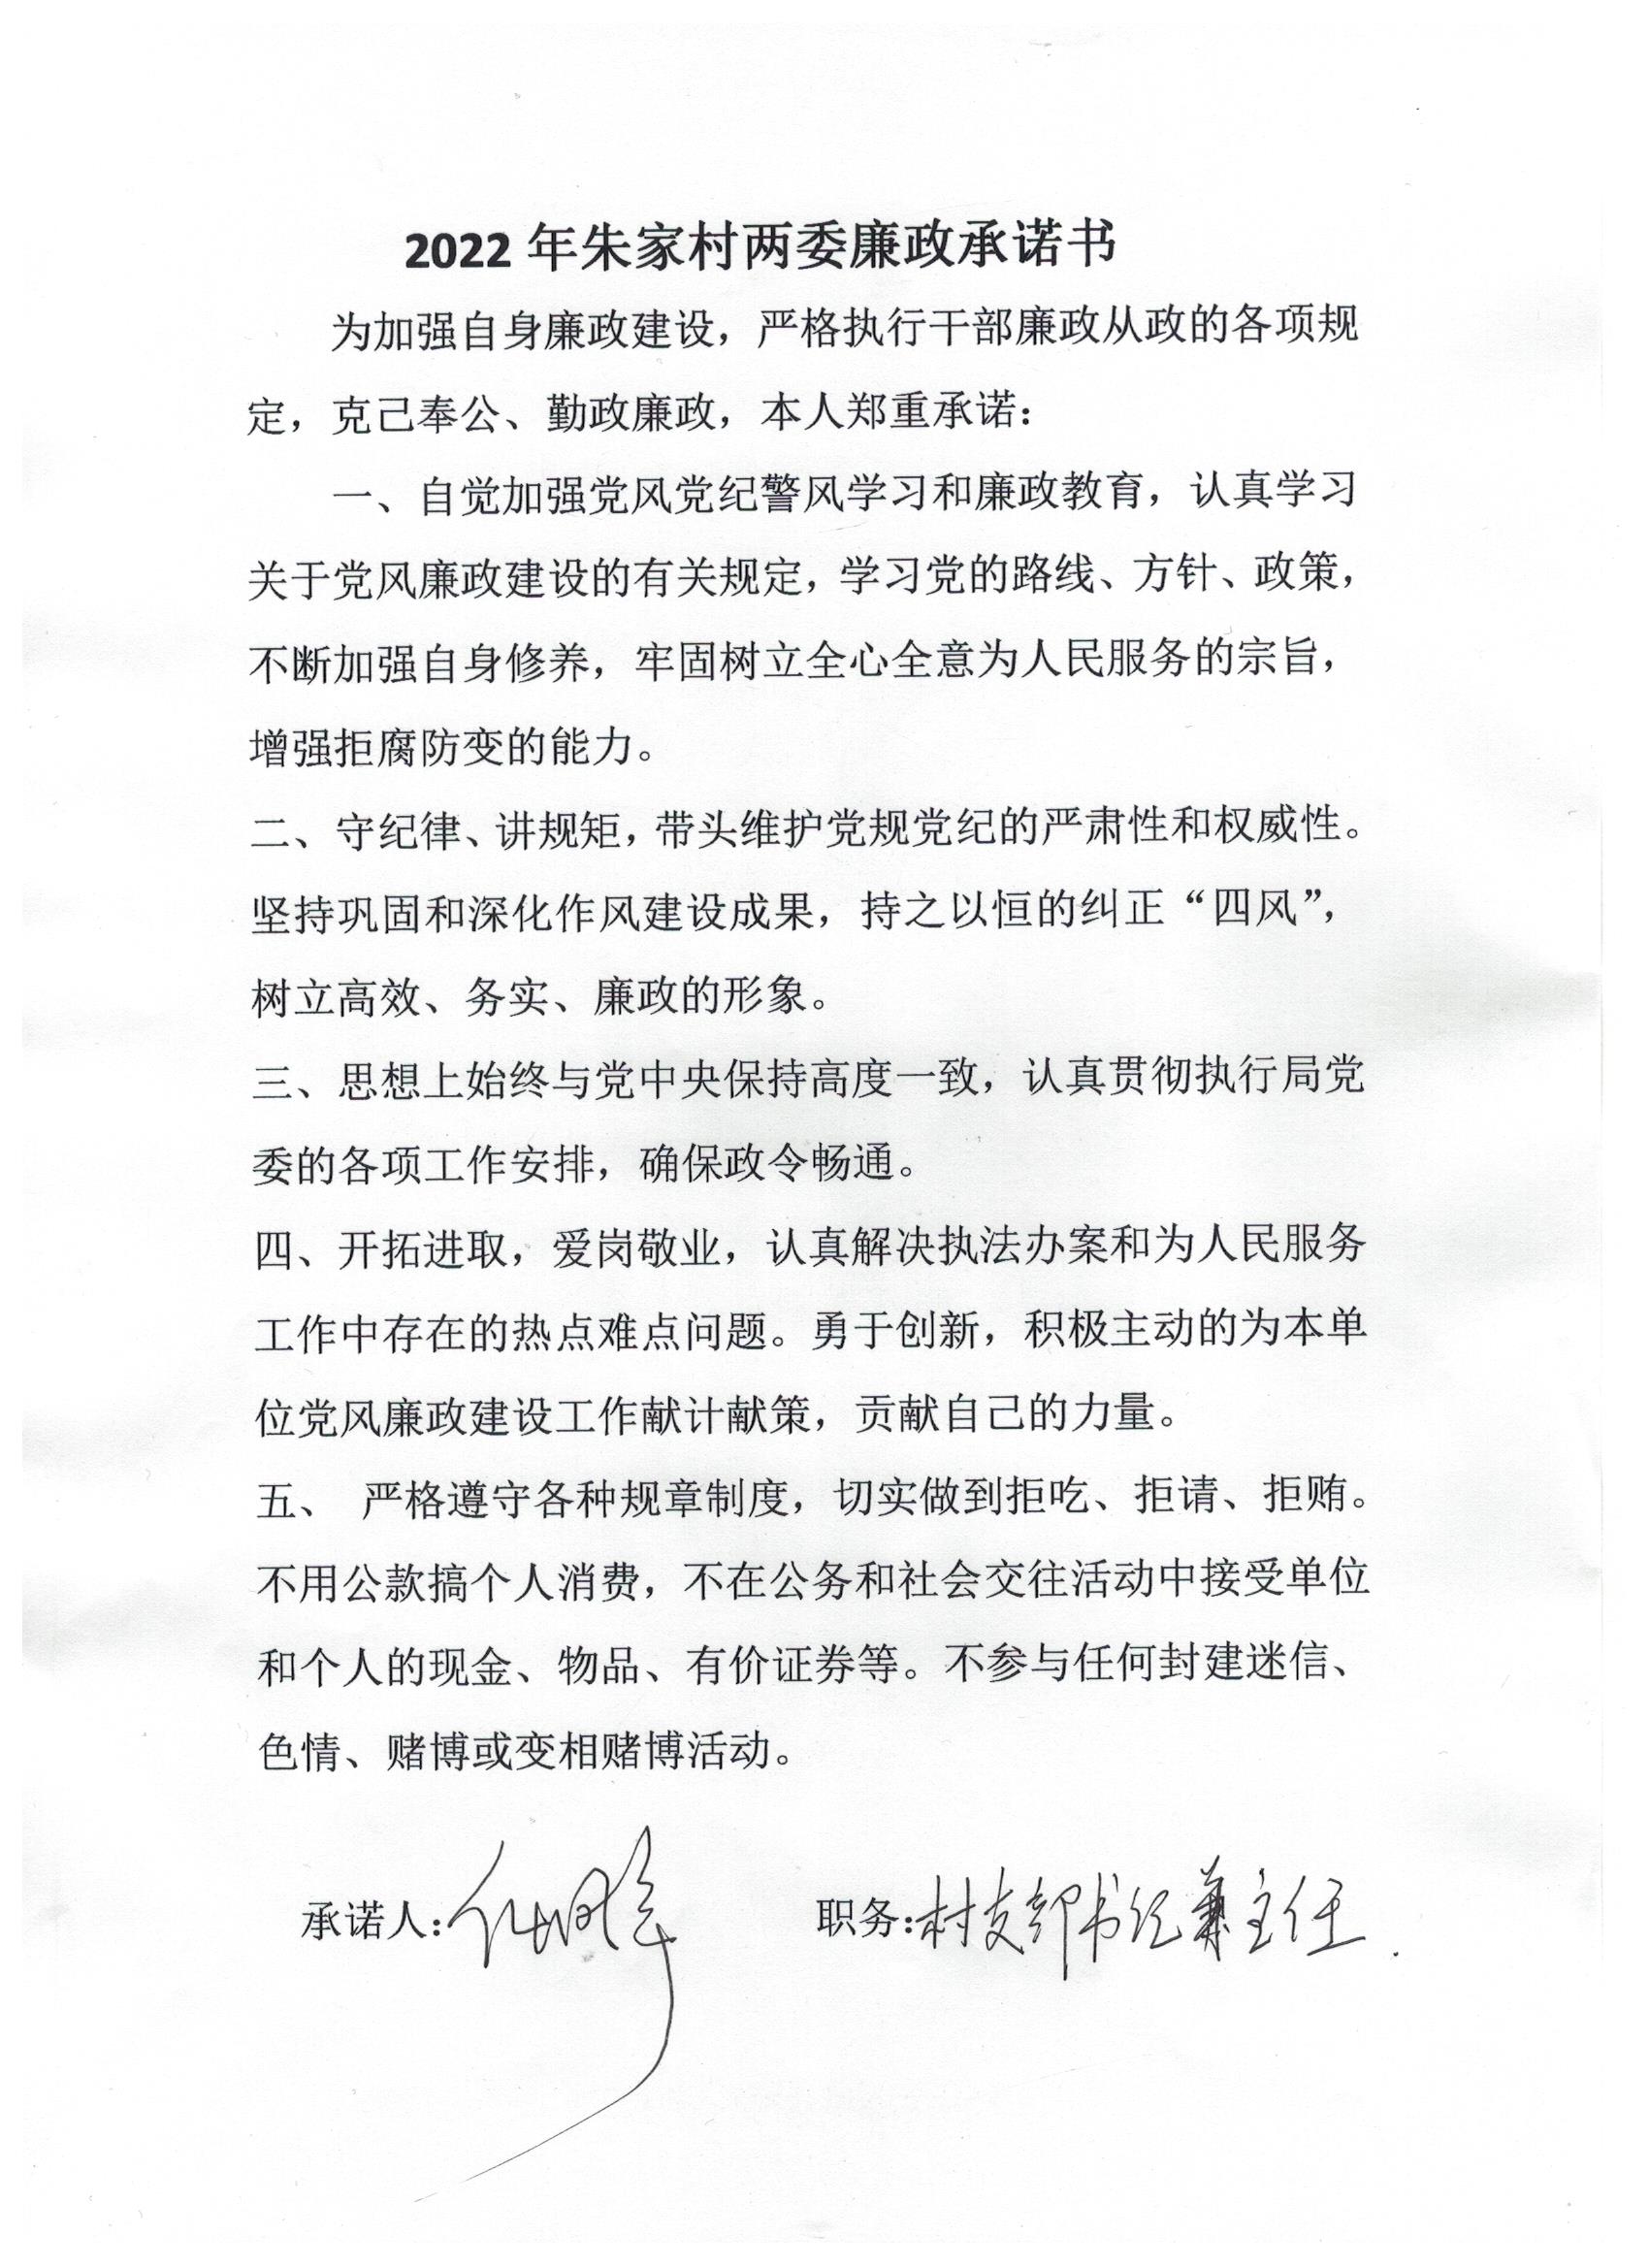 2022年朱家村两委廉政承诺书
为加强自身廉政建设，严格执行干部廉政从政的各项规
定，克己奉公、勤政廉政，本人郑重承诺：
一、自觉加强党风党纪警风学习和廉政教育，认真学习
关于党风廉政建设的有关规定，学习党的路线、方针、政策，
不断加强自身修养，牢固树立全心全意为人民服务的宗旨，
增强拒腐防变的能力。
二、守纪律、讲规矩，带头维护党规党纪的严肃性和权威性。
坚持巩固和深化作风建设成果，持之以恒的纠正“四风”，
树立高效、务实、廉政的形象。
三、思想上始终与党中央保持高度一致，认真贯彻执行局党
委的各项工作安排，确保政令畅通。
四、开拓进取，爱岗敬业，认真解决执法办案和为人民服务
工作中存在的热点难点问题。勇于创新，积极主动的为本单
位党风廉政建设工作献计献策，贡献自己的力量。
五、 严格遵守各种规章制度，切实做到拒吃、拒请、拒贿。
不用公款搞个人消费，不在公务和社会交往活动中接受单位
和个人的现金、物品、有价证券等。不参与任何封建迷信、
色情、赌博或变相赌博活动。
承诺人： 职务：村支部书记兼主任.